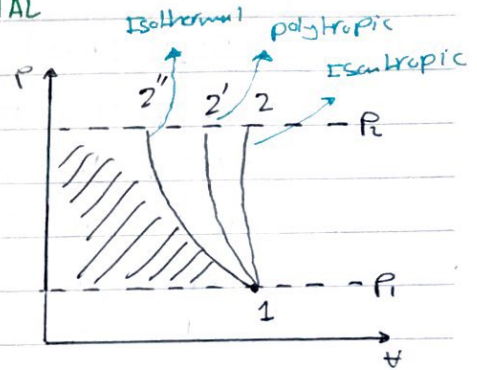 TAL
Isothermal
polytropic
Isentropic
P
2"
2'
2
P₂
P₁
1
V